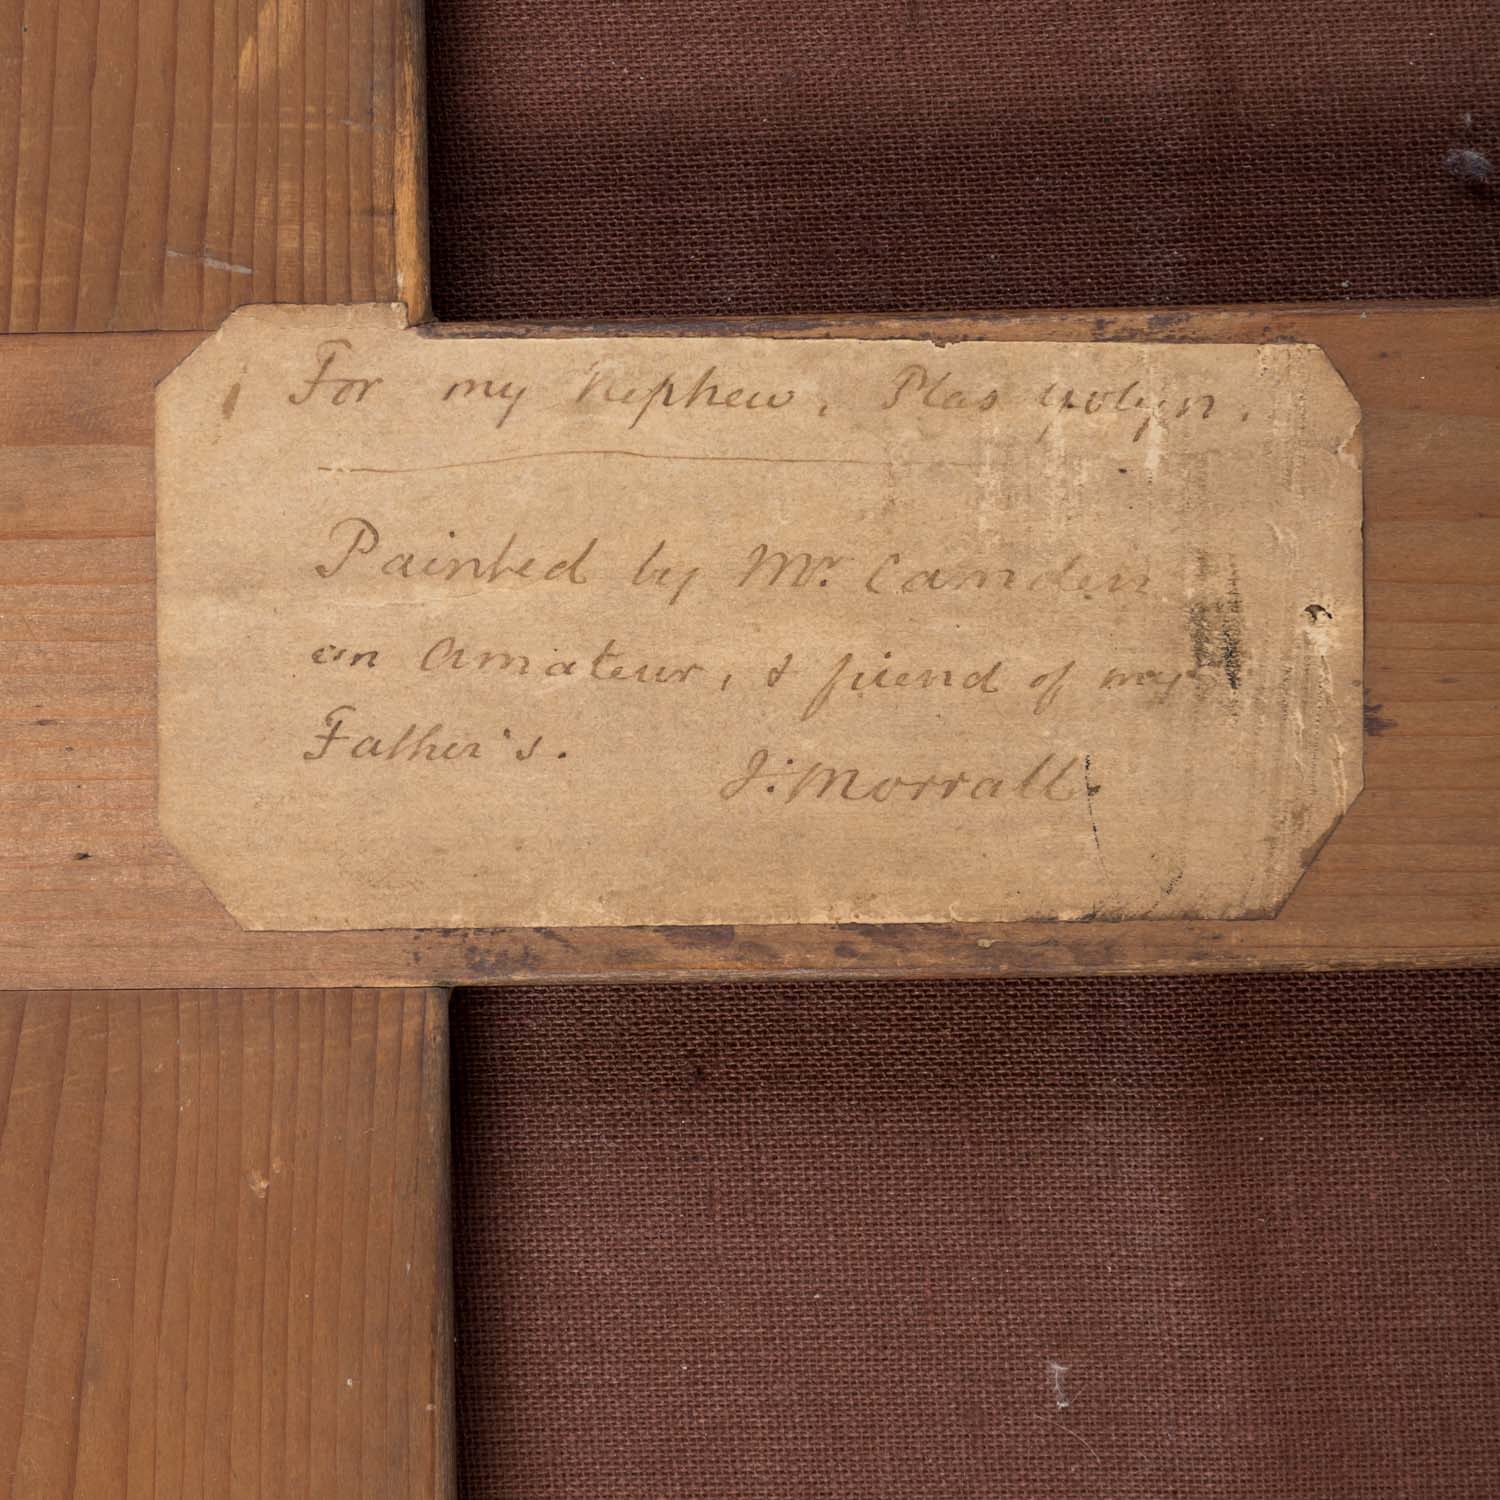 For my Nephew, Plas Yolyn.
Painted by Mr. Camden
an Amateur, & friend of my
Father's.
J: Morrall.